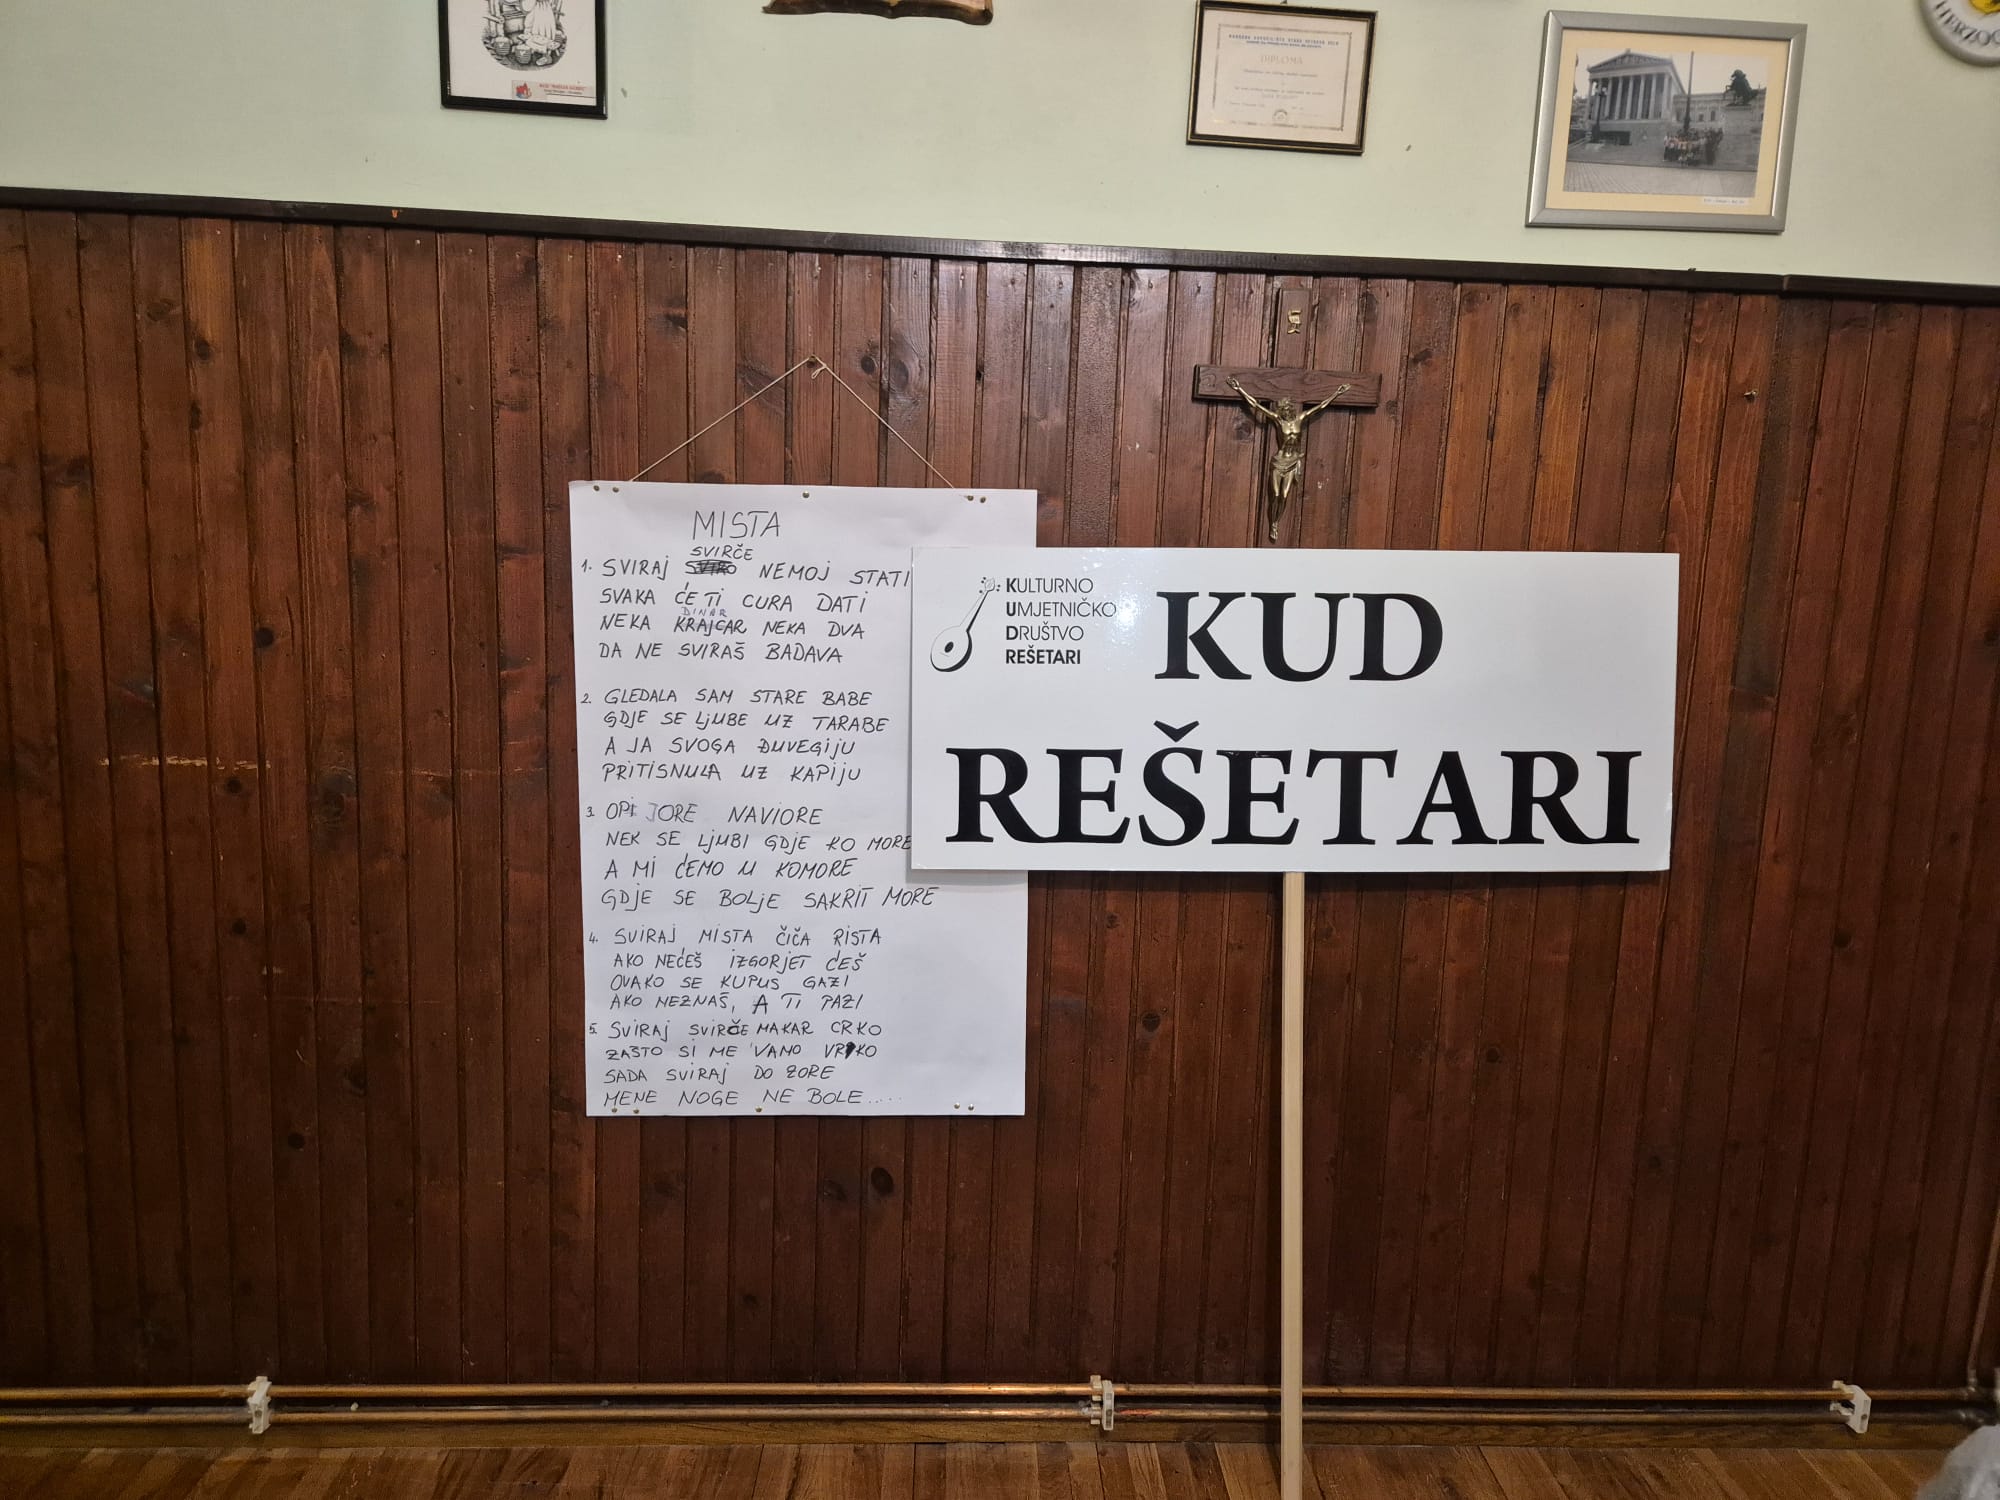 DIPLOMA
HERZOG
MISTA
SVIRČE
1. SVIRAJ NEMOJ STATI
SVAKA ĆE TI CURA DATI
DINAR
NEKA KRAJCAR NEKA DVA
DA NE SVIRAŠ BADAVA
2. GLEDALA SAM STARE BABE
GDJE SE LJUBE UZ TARABE
A JA SVOGA ĐUVEGIJU
PRITISNULA UZ KAPIJU
3. OPI JORE NAVIORE
NEK SE LJUBI GDJE KO MORE
A MI ĆEMO U KOMORE
GDJE SE BOLJE SAKRIT MORE
4. SVIRAJ MISTA ČIČA RISTA
AKO NEĆEŠ IZGORJET ĆEŠ
OVAKO SE KUPUS GAZI
AKO NEZNAŠ, A TI PAZI
5. SVIRAJ SVIRČE MAKAR CRKO
ZAŠTO SI ME VAMO VRKO
SADA SVIRAJ DO ZORE
MENE NOGE NE BOLE.....
KULTURNO
UMJETNIČKO
DRUŠTVO
REŠETARI
KUD
REŠETARI